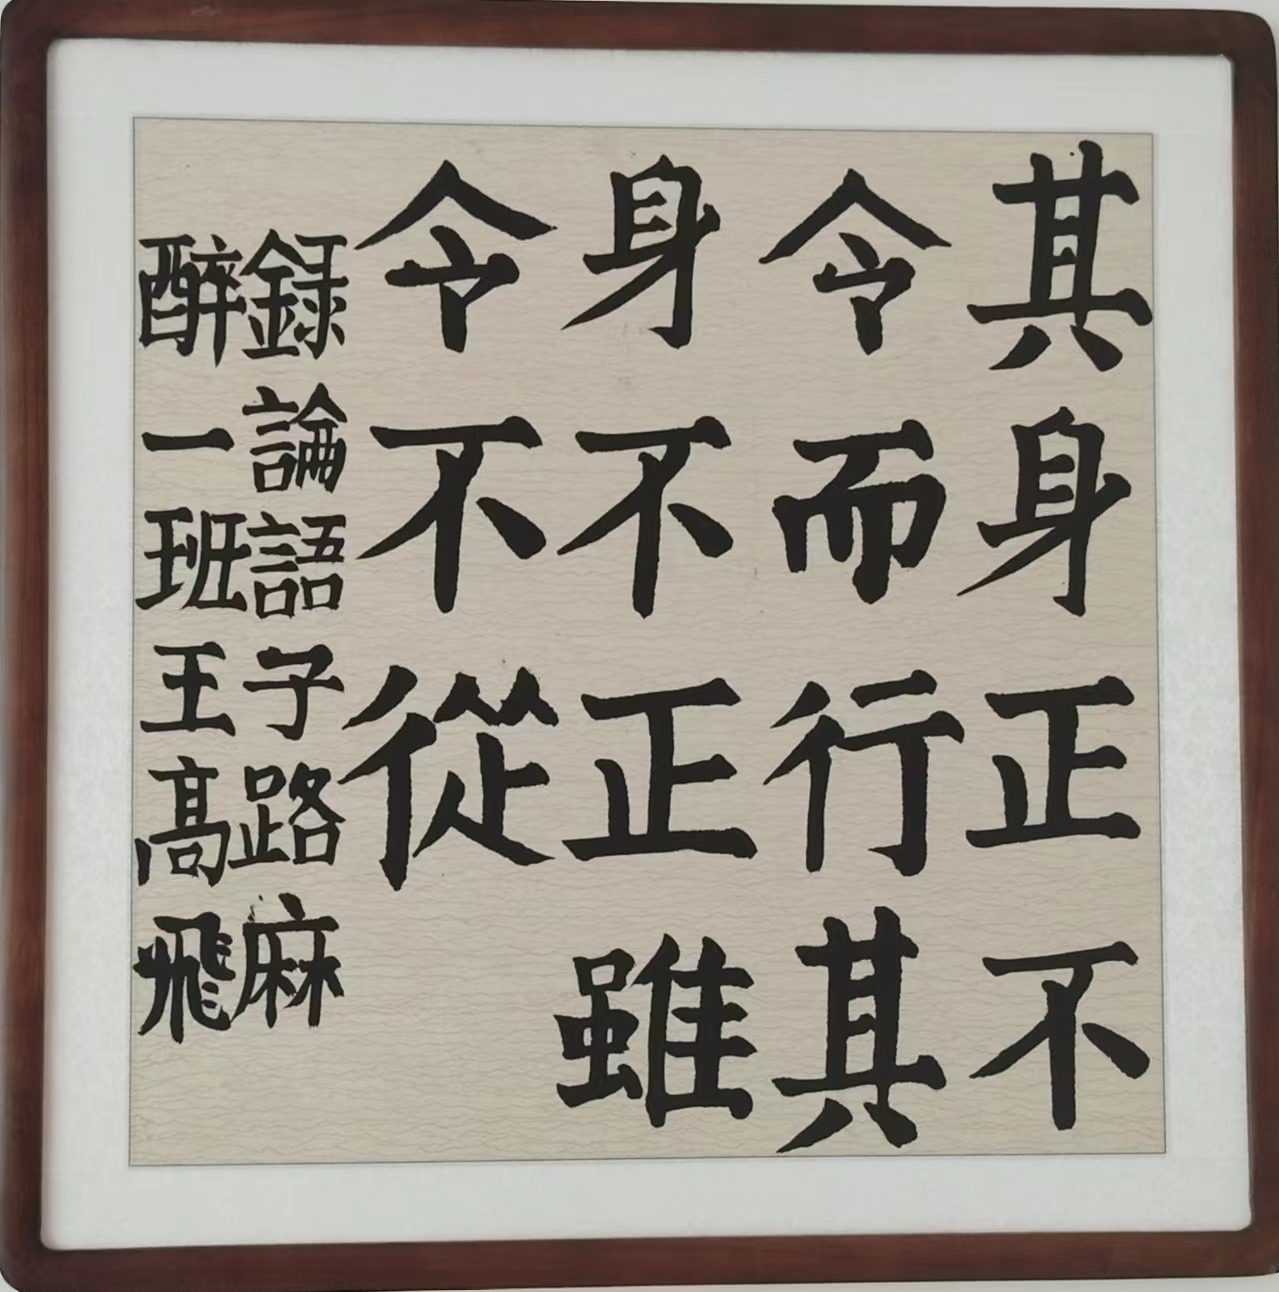 其身正不
令而行其
身不正雖
令不從
録論語子路麻
醉一班王高飛